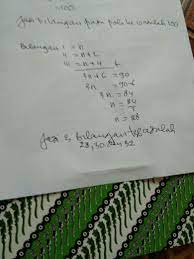 Jadi bilangan pada pola ke 10 adalah 100
Bilangan I = n
II = n+2
III = n+4
3n+6 = 90
3n = 90-6
3n = 84
n = 84
n = 28
Jadi 3 bilangan tsb adalah
28, 30, 32